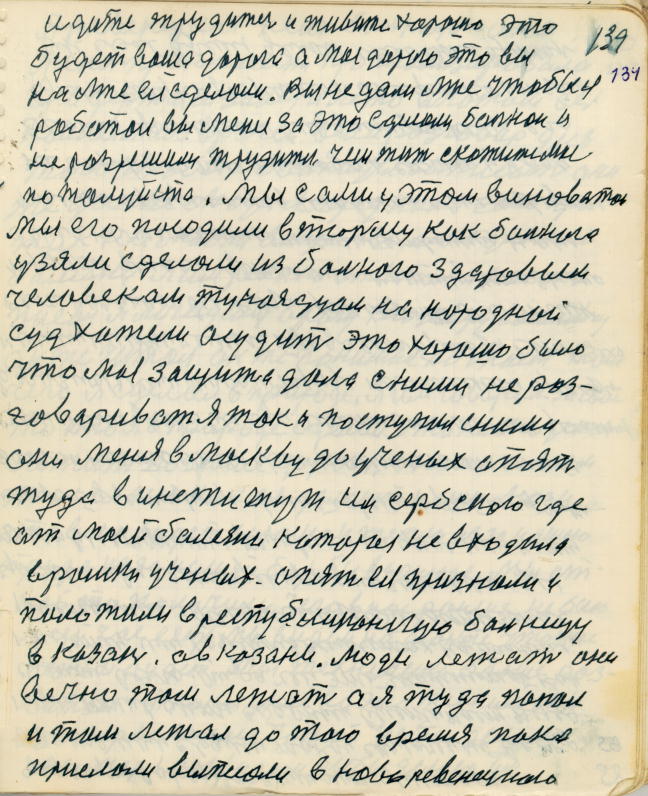 идите трудитеч и живите хорошо это 134
будет ваша дорога а моя дорого это вы
на мне ей сделали. Вы не дали мне чтобы я 134
работал вы меня за это сделали больной и
не разрешили трудитя чем жит скажите мне
пожалуйста. Мы сами у этом виноваты
Мы его посодили в тюрму как балнога
узяли сделоли из балного здаровым
человекам тунояцам на нородной
суд хатели осудит это хорошо было
что моя защита дала сними не роз-
говариват я так и поступил сними
они меня в москву до ученых опят
туда в институт им сербского где
от моей балезни котороя не входила
в рамки ученых. опят ей признали и
положили в республиконскую балницу
в казан. а в казани. люди лежат они
вечно там лежат а я туда попол
и там лежал до того время пока
прислоли выписоли в ново ревенецкого